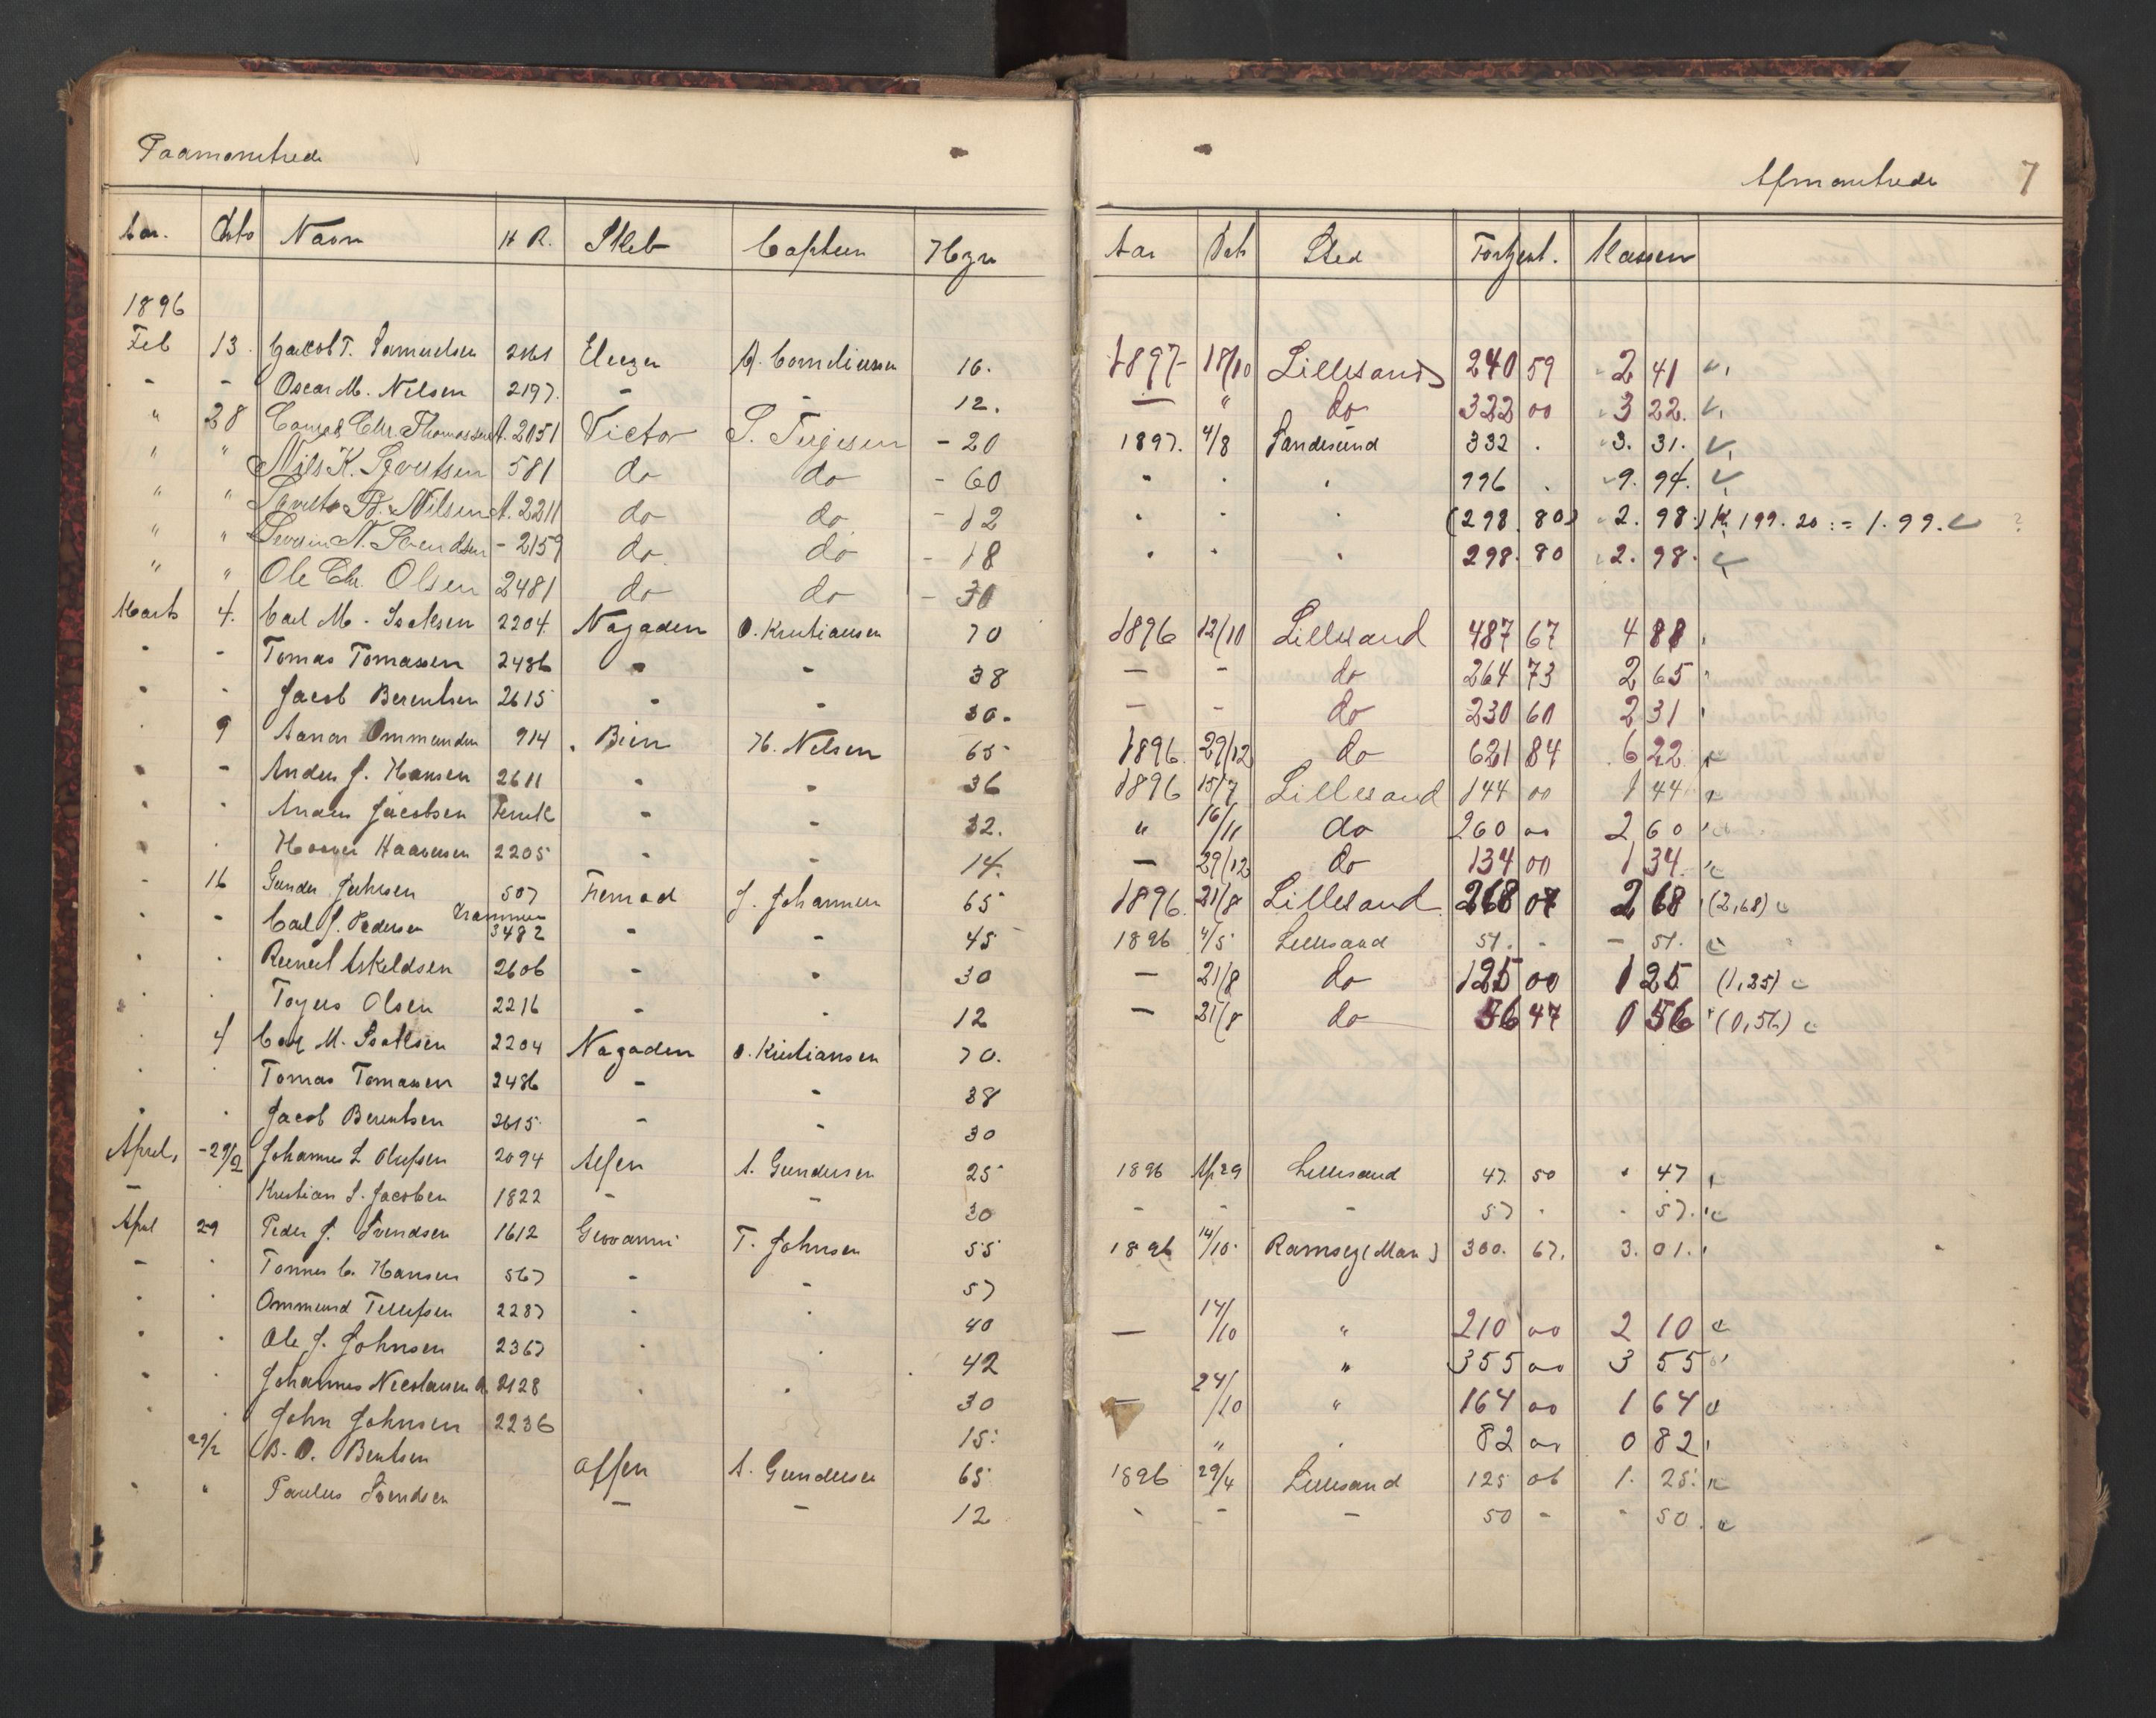 Paamønstrede
Afmønstrede 7
Aar. Dato Navn H R. Skib Captein Hyre
Aar Dat Sted Fortjent. Kassen
1896
Feb 13. Jacob T. Samuelsen 2161 Eleezer A. Corneliussen 16. 1897 18/10 Lillesand 240 59 2 41
- - Oscar M. Nilsen 2197. - - 12. — " do 322 00 3 22.
" 28 Chr. Thomassen A. 2051 Victor S. Terjesen - 20 1897. 4/8 Sandesund 332 . 3. 31.
" " Nils K. Syvertsen 581 do do - 60 " . . 996 . 9. 94.
" " B. Nilsen A. 2211 do do - 12 . - . (298. 80) 2. 98.) Kr 199. 20 := 1. 99. ?
" " Severin N. Svendsen - 2159 do do - 18 . . . 298. 80 2. 98.
" " Ole Chr. Olsen 2481 do do - 30
Marts 4. Carl M. Isaksen 2204. Nøgaden O. Kristiansen 70 1896 12/10 Lillesand 487 67 4 88
- - Tomas Tomassen 2486 - - 38 — - do 264 73 2 65
- - Jacob Berentsen 2615 - - 30. — - do 230 60 2 31
. 9 Aanon Ommundsen 914 . Bien H. Nilsen 65 1896. 29/12 do 621 84 6 22
- - Anders J. Hansen 2611 - - 36 1896 15/7 Lillesand 144 00 1 44
. . Anders Jacobsen - - 32. " 16/11 do 260 00 2 60
. . Haavensen 2205 - - 14. — 29/12 do 134 00 1 34.
- 16 Gunder Juhlsen 507 Fremad J. Johannsen 65 1896. 21/8 Lillesand. 268 07 2 68 (2,68)
. - Carl J. Pedersen 3482 - - 45 1896 4/5 Lillesand 51. - — 51.
. . Reinert Askildsen 2606 - - 30 — 21/8 do 125 00 1 25 (1,25)
. . Olsen 2216 - - 12 — 21/8 do 56 47 0 56 (0,56)
. 4 Carl M. Isaksen 2204 Nøgaden O. Kristiansen 70.
. . Tomas Tomassen 2486 - - 38
. . Jacob Berentsen 2615 - - 30
April, - 29/2 Johannes L Olufsen 2094 Alfen A. Gundersen 25 1896 Ap 29 Lillesand 47. 50 . 47
— . Kristian S. Jacobsen 1822 - - 30 - - - 57 . - 57.
April 29 Peder J. Svendsen 1612 Giovanni T. Johnsen 55 1896 14/10 Ramsey (Man) 300. 67. 3. 01.
- . Tønnes C. Hansen 567 - - 57
. . Ommund Tellefsen 2287 . . 40 — 14/10 " 210 00 2 10
. . Ole J. Johnsen 2367 . . 42 " 355 00 3 55
. . Johannes Nicolaisen A. 2128 . . 30 — 24/10 " 164 00 1 64
. . John Johnsen 2236 15. " . 82 00 0 82
29/2 B. O. Bentsen Alfen A. Gundersen 65 1896 29/4 Lillesand 125 06 1. 25.
- " Paulus Svendsen — — 12 - - - 50 - - 50.